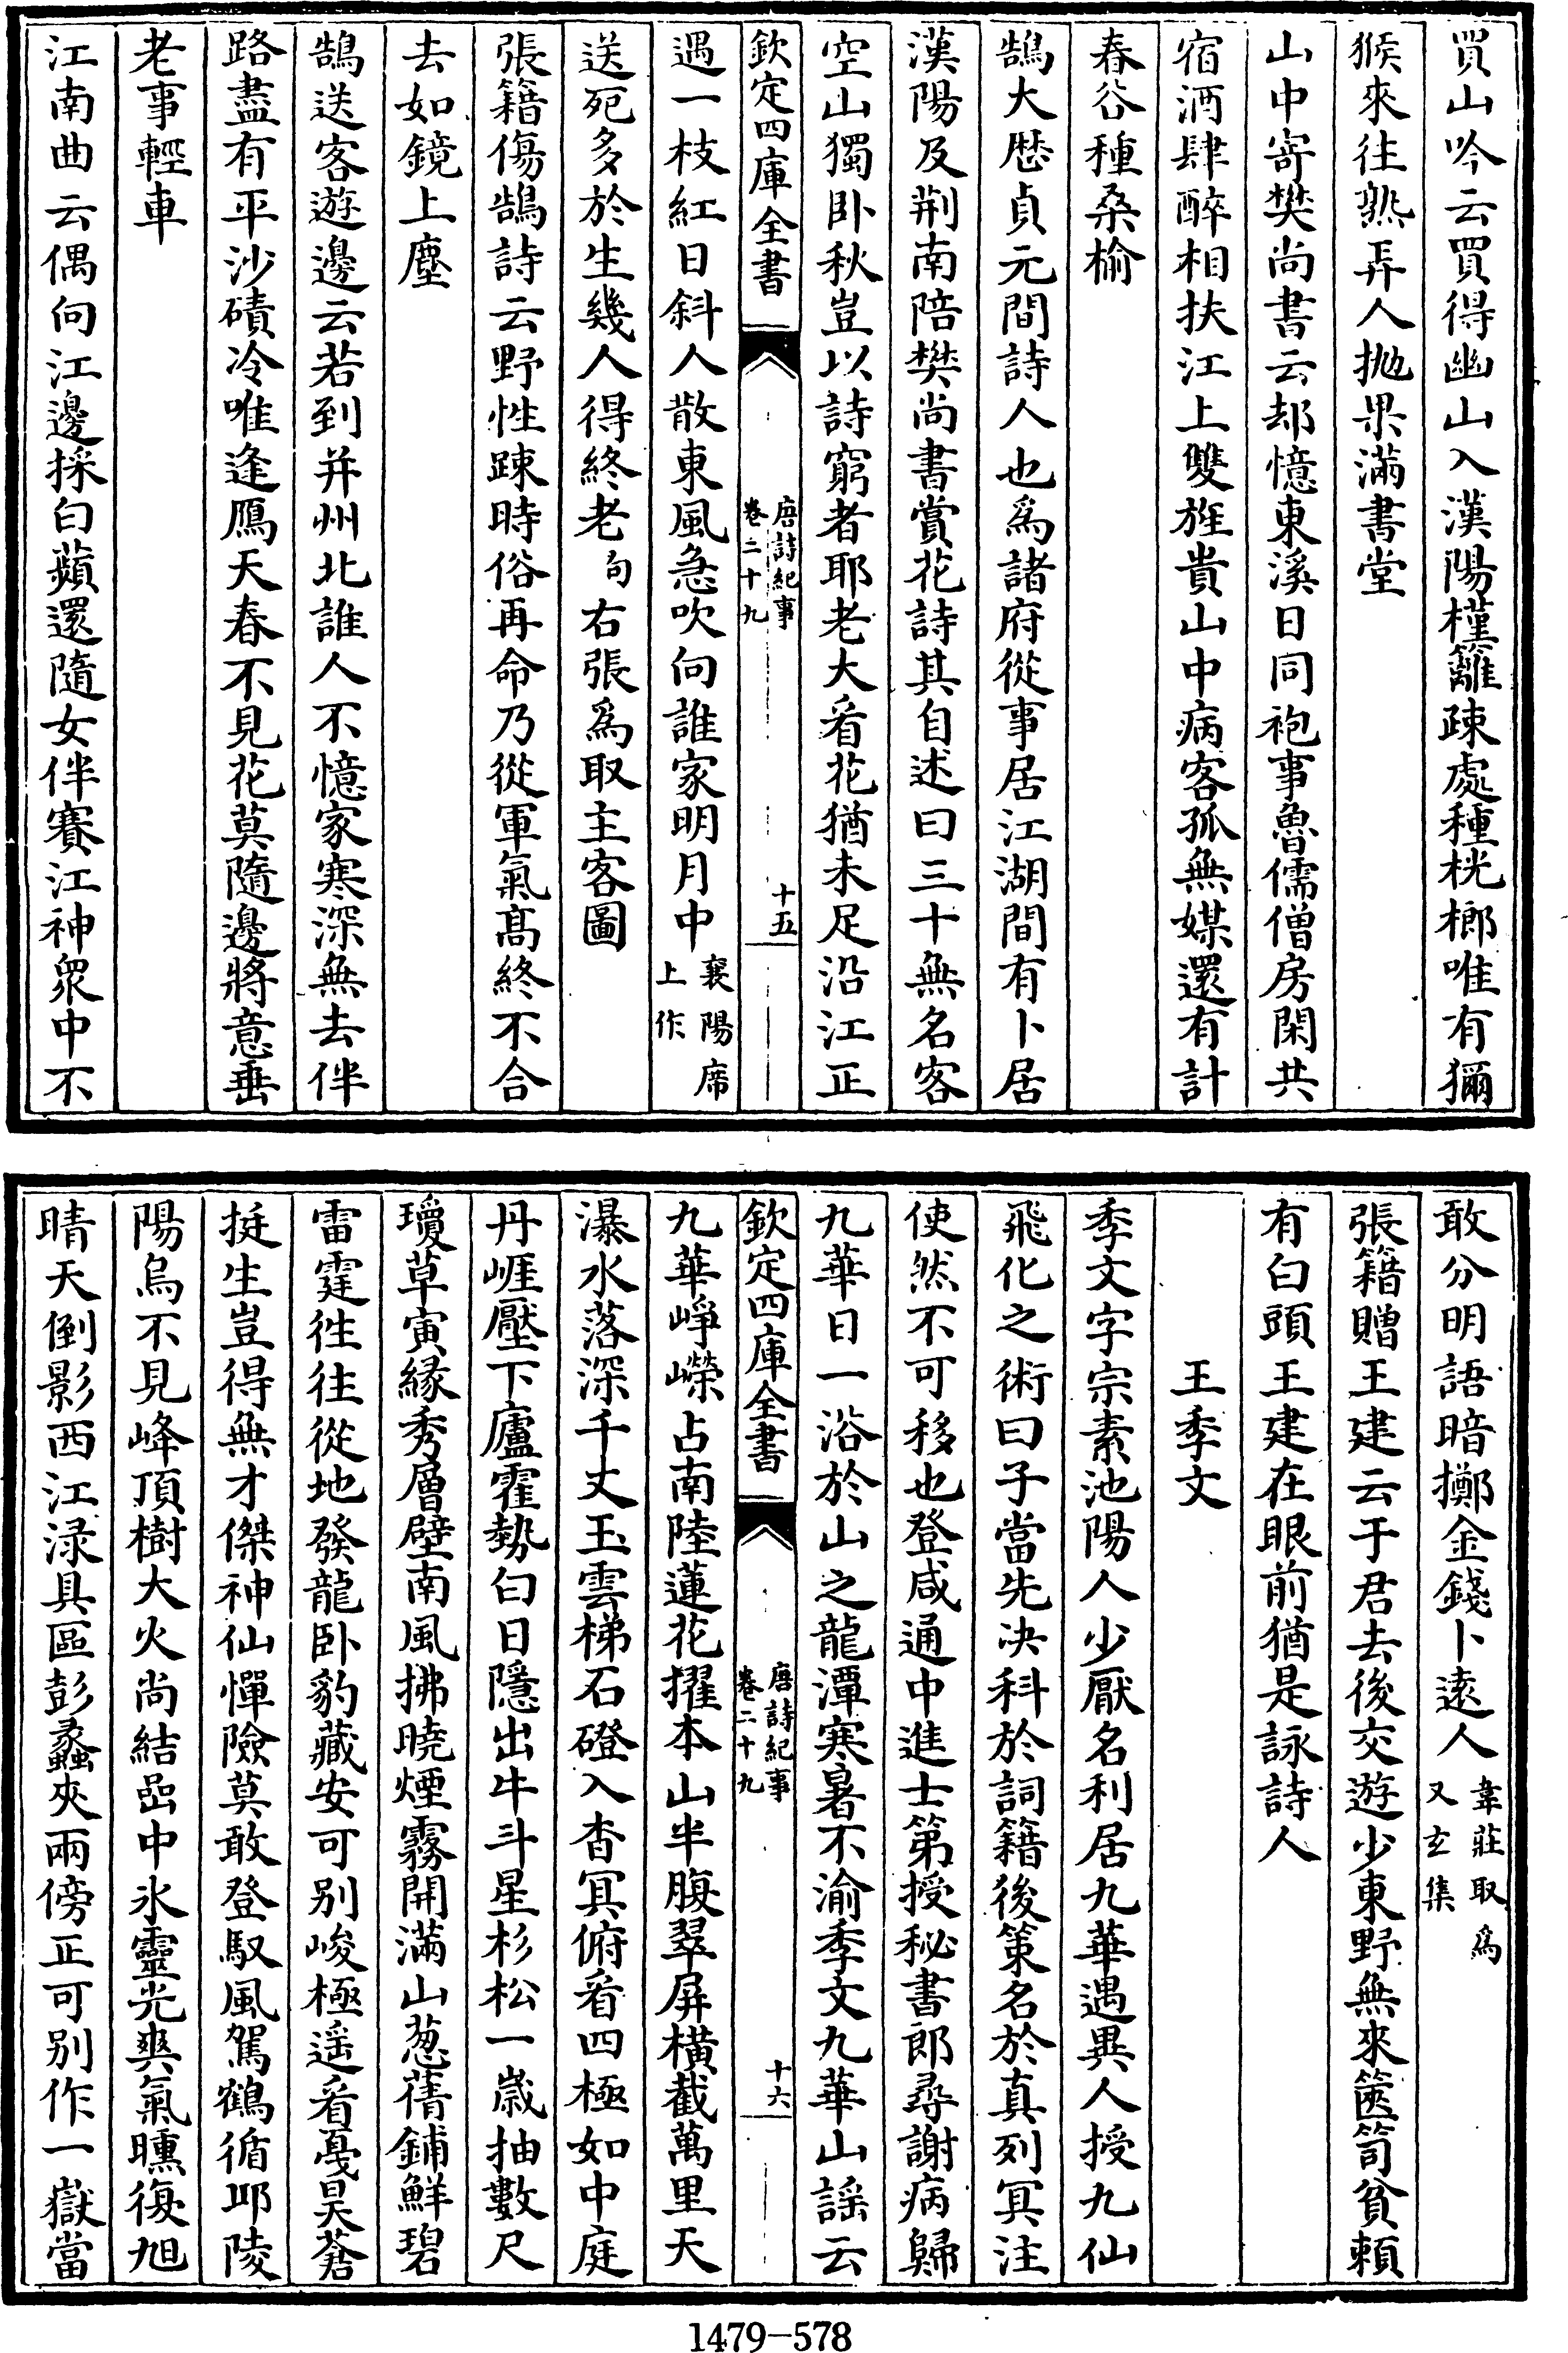 買山吟云買得幽山入漢陽槿籬疎處種桄榔唯有獮
猴來往熟弄人抛果滿書堂
山中寄樊尚書云却憶東溪日同袍事魯儒僧房閑共
宿酒肆醉相扶江上雙旌貴山中病客孤無媒還有計
春谷種桑榆
鵠大厯貞元間詩人也為諸府從事居江湖間有卜居
漢陽及荆南陪樊尚書賞花詩其自述曰三十無名客
空山獨卧秋豈以詩窮者耶老大看花猶未足沿江正
欽定四庫全書
唐詩紀事
卷二十九
十五
遇一枝紅日斜人散東風急吹向誰家明月中襄陽席上作
送死多於生幾人得終老句右張為取主客圖
張籍傷鵠詩云野性疎時俗再命乃從軍氣髙終不合
去如鏡上塵
鵠送客遊邊云若到并州北誰人不憶家寒深無去伴
路盡有平沙磧冷唯逢鴈天春不見花莫隨邊將意垂
老事輕車
江南曲云偶向江邊採白蘋還隨女伴賽江神衆中不
敢分明語暗擲金錢卜遠人韋莊取為又玄集
張籍贈王建云于君去後交遊少東野無來篋笥貧賴
有白頭王建在眼前猶是詠詩人
王季文
季文字宗素池陽人少厭名利居九華遇異人授九仙
飛化之術曰子當先決科於詞籍後策名於真列冥注
使然不可移也登咸通中進士第授秘書郎尋謝病歸
九華日一浴於山之龍潭寒暑不渝季文九華山謡云
欽定四庫全書
唐詩紀事
卷二十九
十六
九華崢嶸占南陸蓮花擢本山半腹翠屏横截萬里天
瀑水落深千丈玉雲梯石磴入杳冥俯看四極如中庭
丹崕壓下廬霍勢白日隱出牛斗星杉松一歲抽數尺
瓊草寅緣秀層壁南風拂曉煙霧開滿山葱蒨鋪鮮碧
雷霆往往從地發龍卧豹藏安可别峻極遥看戞昊蒼
挺生豈得無才傑神仙憚險莫敢登馭風駕鶴循邱陵
陽烏不見峰頂樹大火尚結嵒中氷靈光爽氣曛復旭
晴天倒影西江渌具區彭蠡夾兩傍正可别作一嶽當
1479-578